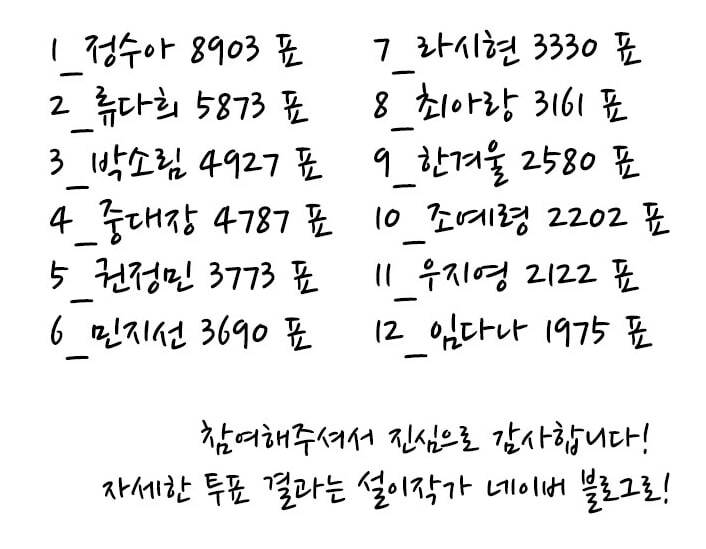 1_정수아 8903 표
2_류다희 5873 표
3_박소림 4927 표
4_중대장 4787 표
5_권정민 3773 표
6_민지선 3690 표
7_라시현 3330 표
8_최아랑 3161 표
9_한겨울 2580 표
10_조예령 2202 표
11_우지영 2122 표
12_임다나 1975 표
참여해주셔서 진심으로 감사합니다!
자세한 투표 결과는 설이작가 네이버 블로그로!